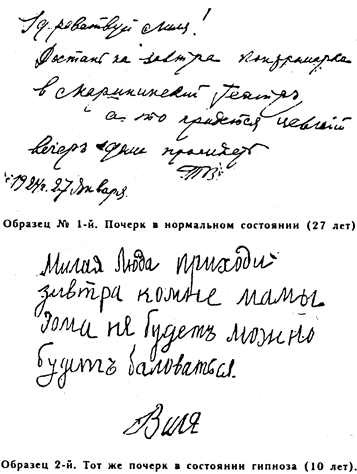 Здравствуй Лиля!
Достань на завтра контромарка
в Мариинский Театръ
а то придется целый
вечеръ дома просидеть
1924г. 27 Января.
Образец № 1-й. Почерк в нормальном состоянии (27 лет)
Милая Люда приходи
завтра комне мамы
дома не будетъ можно
будетъ баловаться.
Виля
Образец 2-й. Тот же почерк в состоянии гипноза (10 лет).